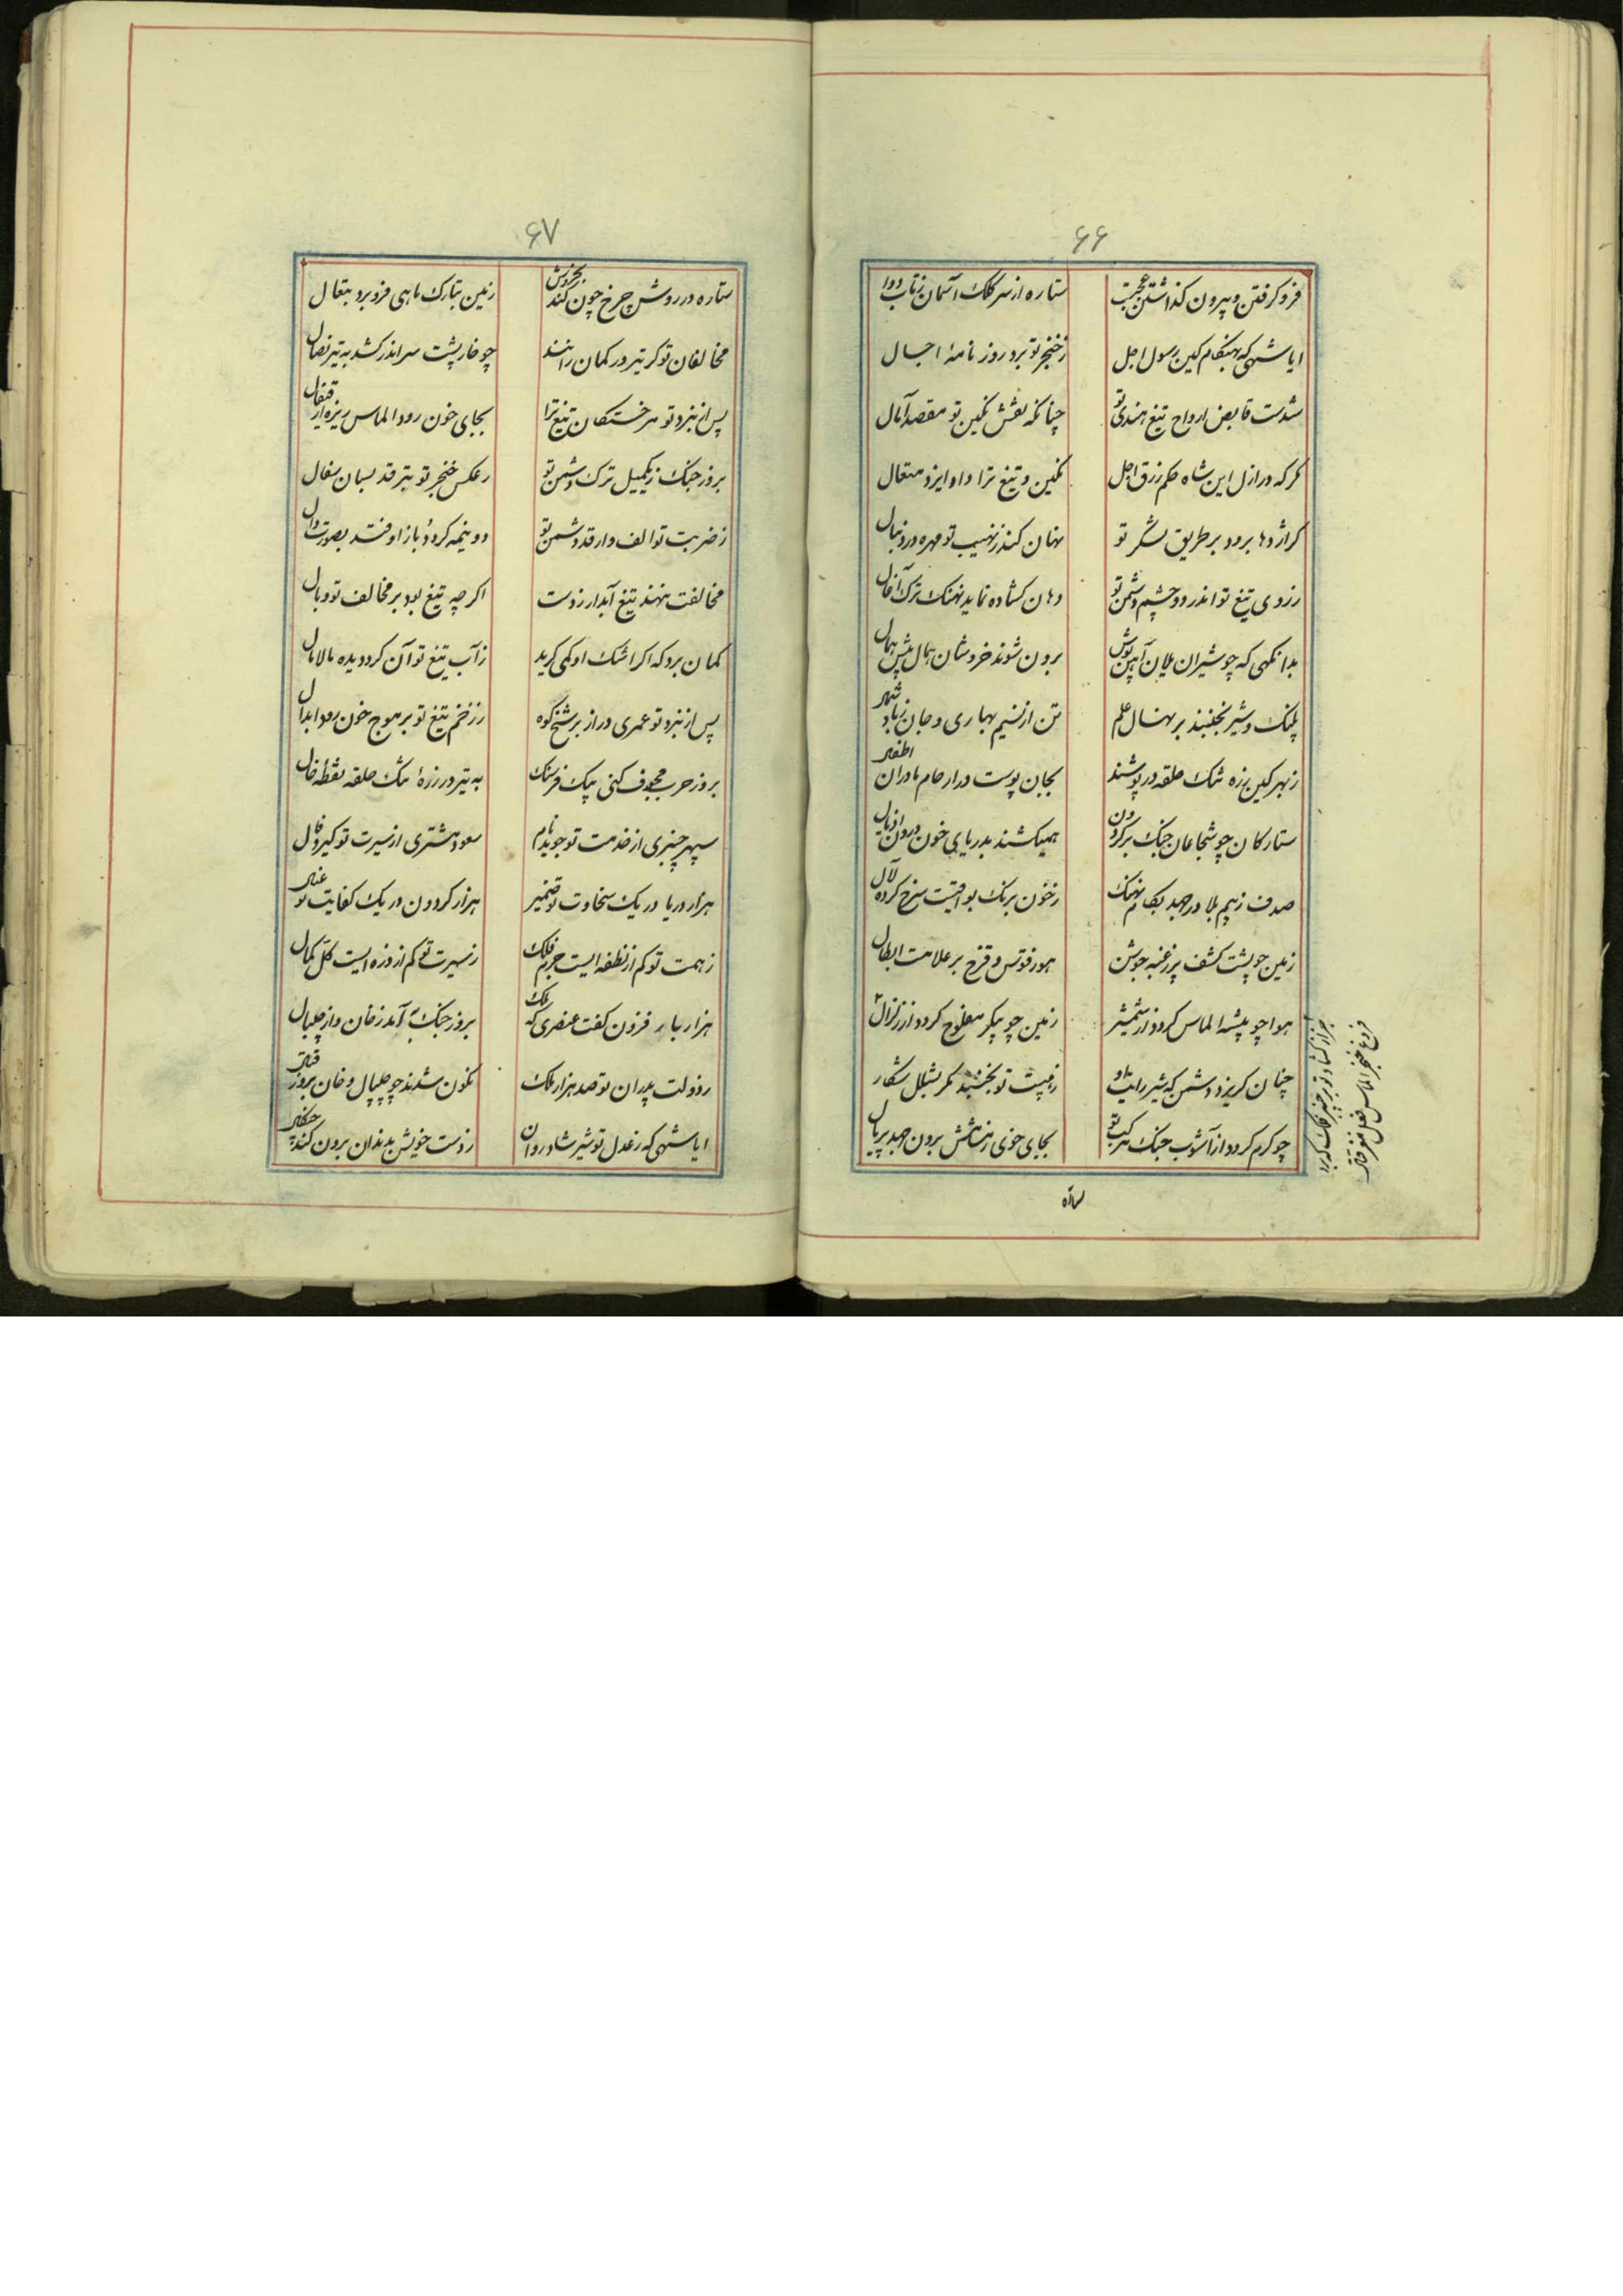 ۶۶
فروگرفتن و بیرون کذاشتن عجبت
ستاره از سر کلک آسمان زتاب دوا
ایا شهی که بهنکام کین رسول اجل
زخنجر تو برد روزنامهٔ اجال
شدست قابض ارواح تیغ هندی تو
چنانکه نقش نکین تو مقصد آمال
مکر که در ازل این شاه حکم رزق و اجل
نکین و تیغ ترا داد ایزد متعال
کر اژدها برود بر طریق لشکر تو
نهان کند زنهیب تو مهره در دنبال
زروی تیغ تو اندر دو چشم دشمن تو
دهان کشاده نماید نهنک
بدانکهی که چو شیران یلان آهن پوش
برون شوند خروشان همال پیش همال
پلنک و شیر بجنبند بر نهال علم
تن از نسیم بهاری و جان زباد شهر
زبهر کین زره تنک حلقه در پوشند
بجان پوست در ارحام مادران اطفال
ستارکان چو شجاعان جنک بر کردون
همیکشند بدریای خون درون اذیال
صدف زبیم بلا درجهد بکام نهنک
زخون برنک یواقیت سرخ کرده لآل
زمین چو پشت کشف پر زغیبه جوشن
هوا زقوس و قزح بر علامت ابطال
هوا چو پیشه الماس کردد از شمشیر
زمین چو پیکر مفلوج کردد از زلزال
چنان کریزد دشمن که شیر رایت او
زهیبت تو بجنبد مکر بشکل شکار
چو کرم کردد از آشوب جنک مرکب تو
بجای خوی زمسامش برون جهد پر و بال
ستاره
۶۷
ستاره در روش چرخ چون کند بخروش
زمین بتارک ماهی فرو برد بنعال
مخالفان تو کر تیر در کمان رانند
چو خارپشت سر اندر کشد به تیر نصال
پس از نبرد تو مر خستکان تیغ ترا
بجای خون رود الماس ریزه از قیفال
بروز جنک زیکمیل ترک دشمن تو
زعکس خنجر تو بترقد بسان سفال
زضربت تو الف وار قد دشمن تو
دونیمه کردد و باز اوفتد بصورت دال
مخالفت نهند تیغ آبدار زدست
اکرچه تیغ بود بر مخالف تو وبال
کمان برد که اکر اشک او کمی کرید
زآب تیغ تو آن کرد دیده مالامال
پس از نبرد تو عمری دراز بر شخ کوه
ززخم تیغ تو بر موج خون رود ابدال
بروز حرب مجوف کنی بیک فرسنک
به تیر در زرهٔ تنک حلقه نقطه خال
سپهر چنبری از خدمت تو جوید نام
سعود مشتری از سیرت تو کیرد فال
هزار دریا در یک سخاوت تو ضمیر
هزار کردون در یک کفایت تو عیال
زهمت تو کم از نطفه ایست جرم فلک
زسیرت تو کم از ذره ایست کل کمال
هزار بار فزون کفت عنصری که ملک
بروز جنک چه آمد زخان و از چیپال
زدولت پدران تو صد هزار ملک
نکون شدند چو چیپال و خان بروز قتال
ایا شهی که زعدل تو شیر شادروان
زدست خویش بدندان برون کند چنکال